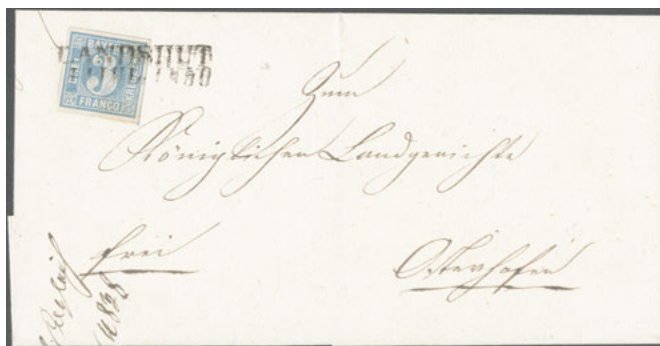 LANDSHUT
JUL. 1850
BAYERN
3
FRANCO
Zum
Königlichen Landgerichte
frei
Osterhofen